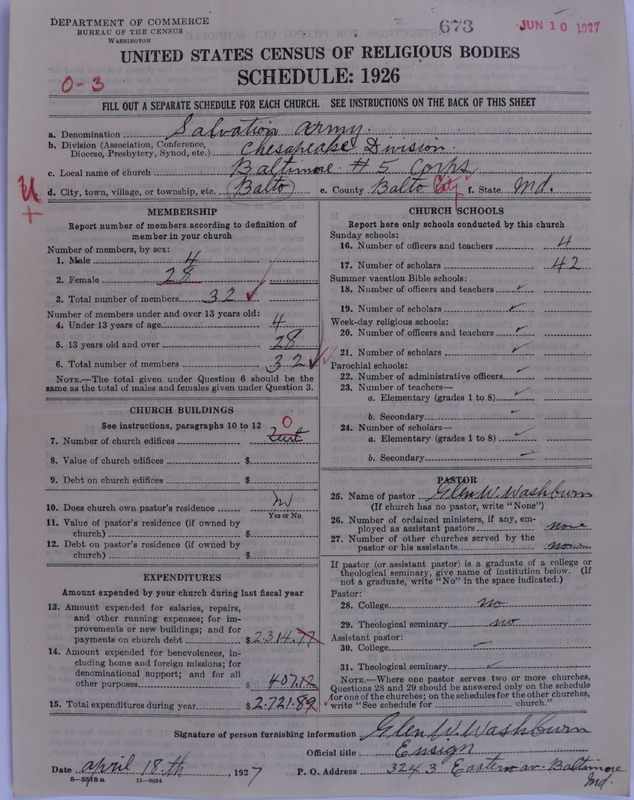 DEPARTMENT OF COMMERCE
BUREAU OF THE CENSUS
WASHINGTON
673
JUN 10 1927
UNITED STATES CENSUS OF RELIGIOUS BODIES
SCHEDULE: 1926
0-3
FILL OUT A SEPARATE SCHEDULE FOR EACH CHURCH. SEE INSTRUCTIONS ON THE BACK OF THIS SHEET
a. Denomination Salvation Army.
b. Division (Association, Conference,
Diocese, Presbytery, Synod, etc.) Chesapeake Division.
c. Local name of church Baltimore # 5 Corps
d. City, town, village, or township, etc. Balto e. County Balto City f. State Md.
MEMBERSHIP
Report number of members according to definition of
member in your church
Number of members, by sex:
1. Male 4
2. Female 28
3. Total number of members 32
Number of members under and over 13 years old:
4. Under 13 years of age 4
5. 13 years old and over 28
6. Total number of members 32
NOTE.—The total given under Question 6 should be the
same as the total of males and females given under Question 3.
CHURCH BUILDINGS
See instructions, paragraphs 10 to 12
0
7. Number of church edifices
8. Value of church edifices $
9. Debt on church edifices $
10. Does church own pastor's residence no
Yes or No
11. Value of pastor's residence (if owned by
church) $
12. Debt on pastor's residence (if owned by
church) $
EXPENDITURES
Amount expended by your church during last fiscal year
13. Amount expended for salaries, repairs,
and other running expenses; for im-
provements or new buildings; and for
payments on church debt $2314.77
14. Amount expended for benevolences, in-
cluding home and foreign missions; for
denominational support; and for all
other purposes $ 407.12
15. Total expenditures during year $2.721.89
CHURCH SCHOOLS
Report here only schools conducted by this church
Sunday schools:
16. Number of officers and teachers 4
17. Number of scholars 42
Summer vacation Bible schools:
18. Number of officers and teachers
19. Number of scholars
Week-day religious schools:
20. Number of officers and teachers
21. Number of scholars
Parochial schools:
22. Number of administrative officers
23. Number of teachers—
a. Elementary (grades 1 to 8)
b. Secondary
24. Number of scholars—
a. Elementary (grades 1 to 8)
b. Secondary
PASTOR
25. Name of pastor Glen W. Washburn
(If church has no pastor, write "None")
26. Number of ordained ministers, if any, em-
ployed as assistant pastors none
27. Number of other churches served by the
pastor or his assistants none
If pastor (or assistant pastor) is a graduate of a college or
theological seminary, give name of institution below. (If
not a graduate, write "No" in the space indicated.)
Pastor:
28. College no
29. Theological seminary no
Assistant pastor:
30. College
31. Theological seminary
NOTE.—Where one pastor serves two or more churches,
Questions 28 and 29 should be answered only on the schedule
for one of the churches; on the schedules for the other churches,
write "See schedule for church."
Signature of person furnishing information Glen W. Washburn
Official title Ensign
Date April 18th, 1927 P. O. Address 3243 Eastern av. Baltimore
Md.
8-5518a 11-9054